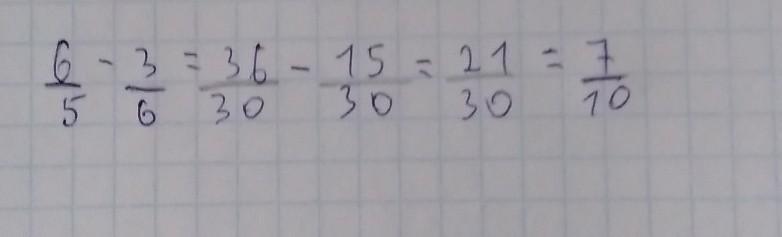 6/5 - 3/6 = 36/30 - 15/30 = 21/30 = 7/10